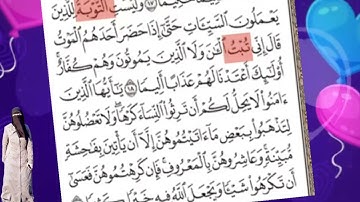 وَلَيْسَتِ التَّوْبَةُ لِلَّذِينَ
يَعْمَلُونَ السَّيِّئَاتِ حَتَّىٰ إِذَا حَضَرَ أَحَدَهُمُ الْمَوْتُ
قَالَ إِنِّي تُبْتُ الْآنَ وَلَا الَّذِينَ يَمُوتُونَ وَهُمْ كُفَّارٌ
أُولَٰئِكَ أَعْتَدْنَا لَهُمْ عَذَابًا أَلِيمًا ١٨ يَا أَيُّهَا الَّذِينَ
آمَنُوا لَا يَحِلُّ لَكُمْ أَن تَرِثُوا النِّسَاءَ كَرْهًا وَلَا تَعْضُلُوهُنَّ
لِتَذْهَبُوا بِبَعْضِ مَا آتَيْتُمُوهُنَّ إِلَّا أَن يَأْتِينَ بِفَاحِشَةٍ
مُّبَيِّنَةٍ وَعَاشِرُوهُنَّ بِالْمَعْرُوفِ فَإِن كَرِهْتُمُوهُنَّ فَعَسَىٰ
أَن تَكْرَهُوا شَيْئًا وَيَجْعَلَ اللَّهُ فِيهِ خَيْرًا كَثِيرًا